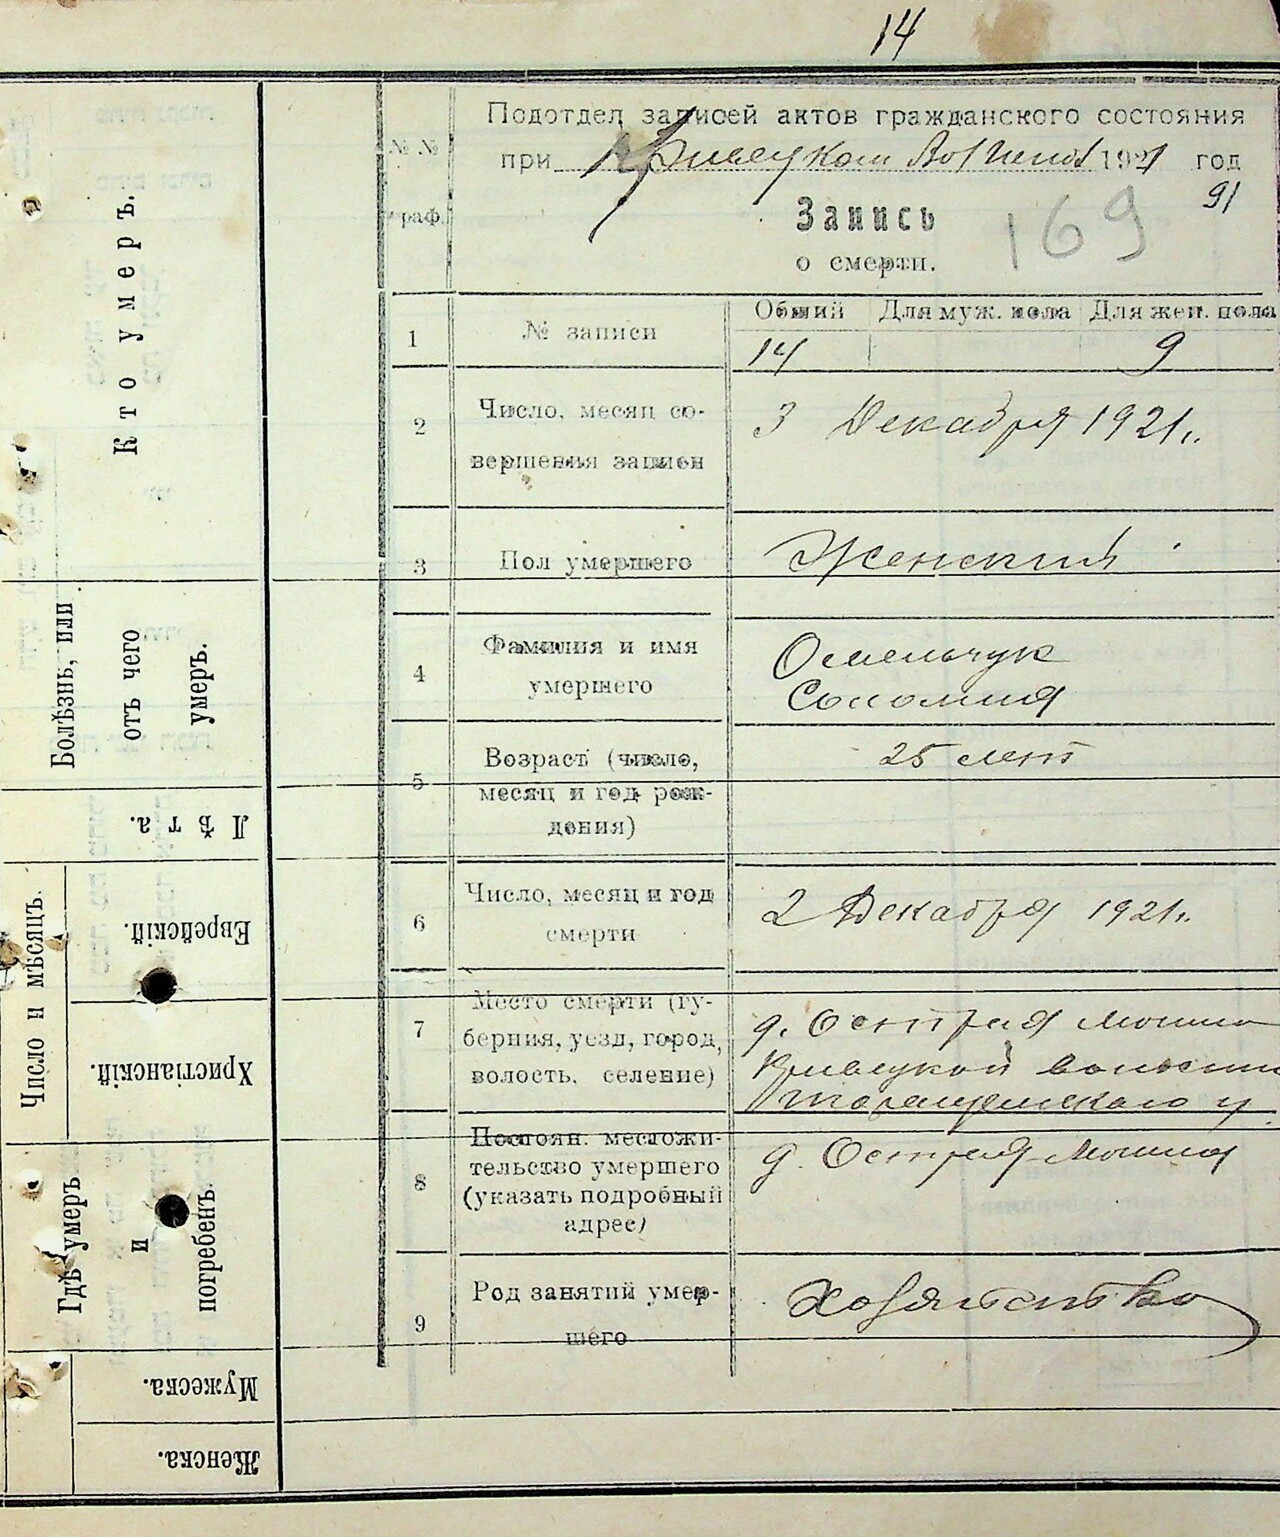 14
Подотдел записей актов гражданского состояния
при Кривецком Волисполк 1921 год
91
169
Запись
о смерти.
№ № граф.
1 № записи
Общий Для муж. пола Для жен. пола
14 9
2 Число, месяц со-
вершения записи
3 Декабря 1921 г.
3 Пол умершего
Женский
4 Фамилия и имя
умершего
Омельчук
Соломия
5 Возраст (число,
месяц и год рож-
дения)
25 лет
6 Число, месяц и год
смерти
2 Декабря 1921 г.
7 Место смерти (гу-
берния, уезд, город,
волость, селение)
д. Острая Могила
Кривецкой волости
Таращанского у.
8 Постоян. местожи-
тельство умершего
(указать подробный
адрес)
д. Острая Могила
9 Род занятий умер-
шего
Хозяйство
Кто умеръ.
Болѣзнь, или
отъ чего
умеръ.
Лѣта.
Число и мѣсяцъ.
Еврейскій.
Христіанскій.
Гдѣ умеръ
и
погребенъ.
Мужеска.
Женска.